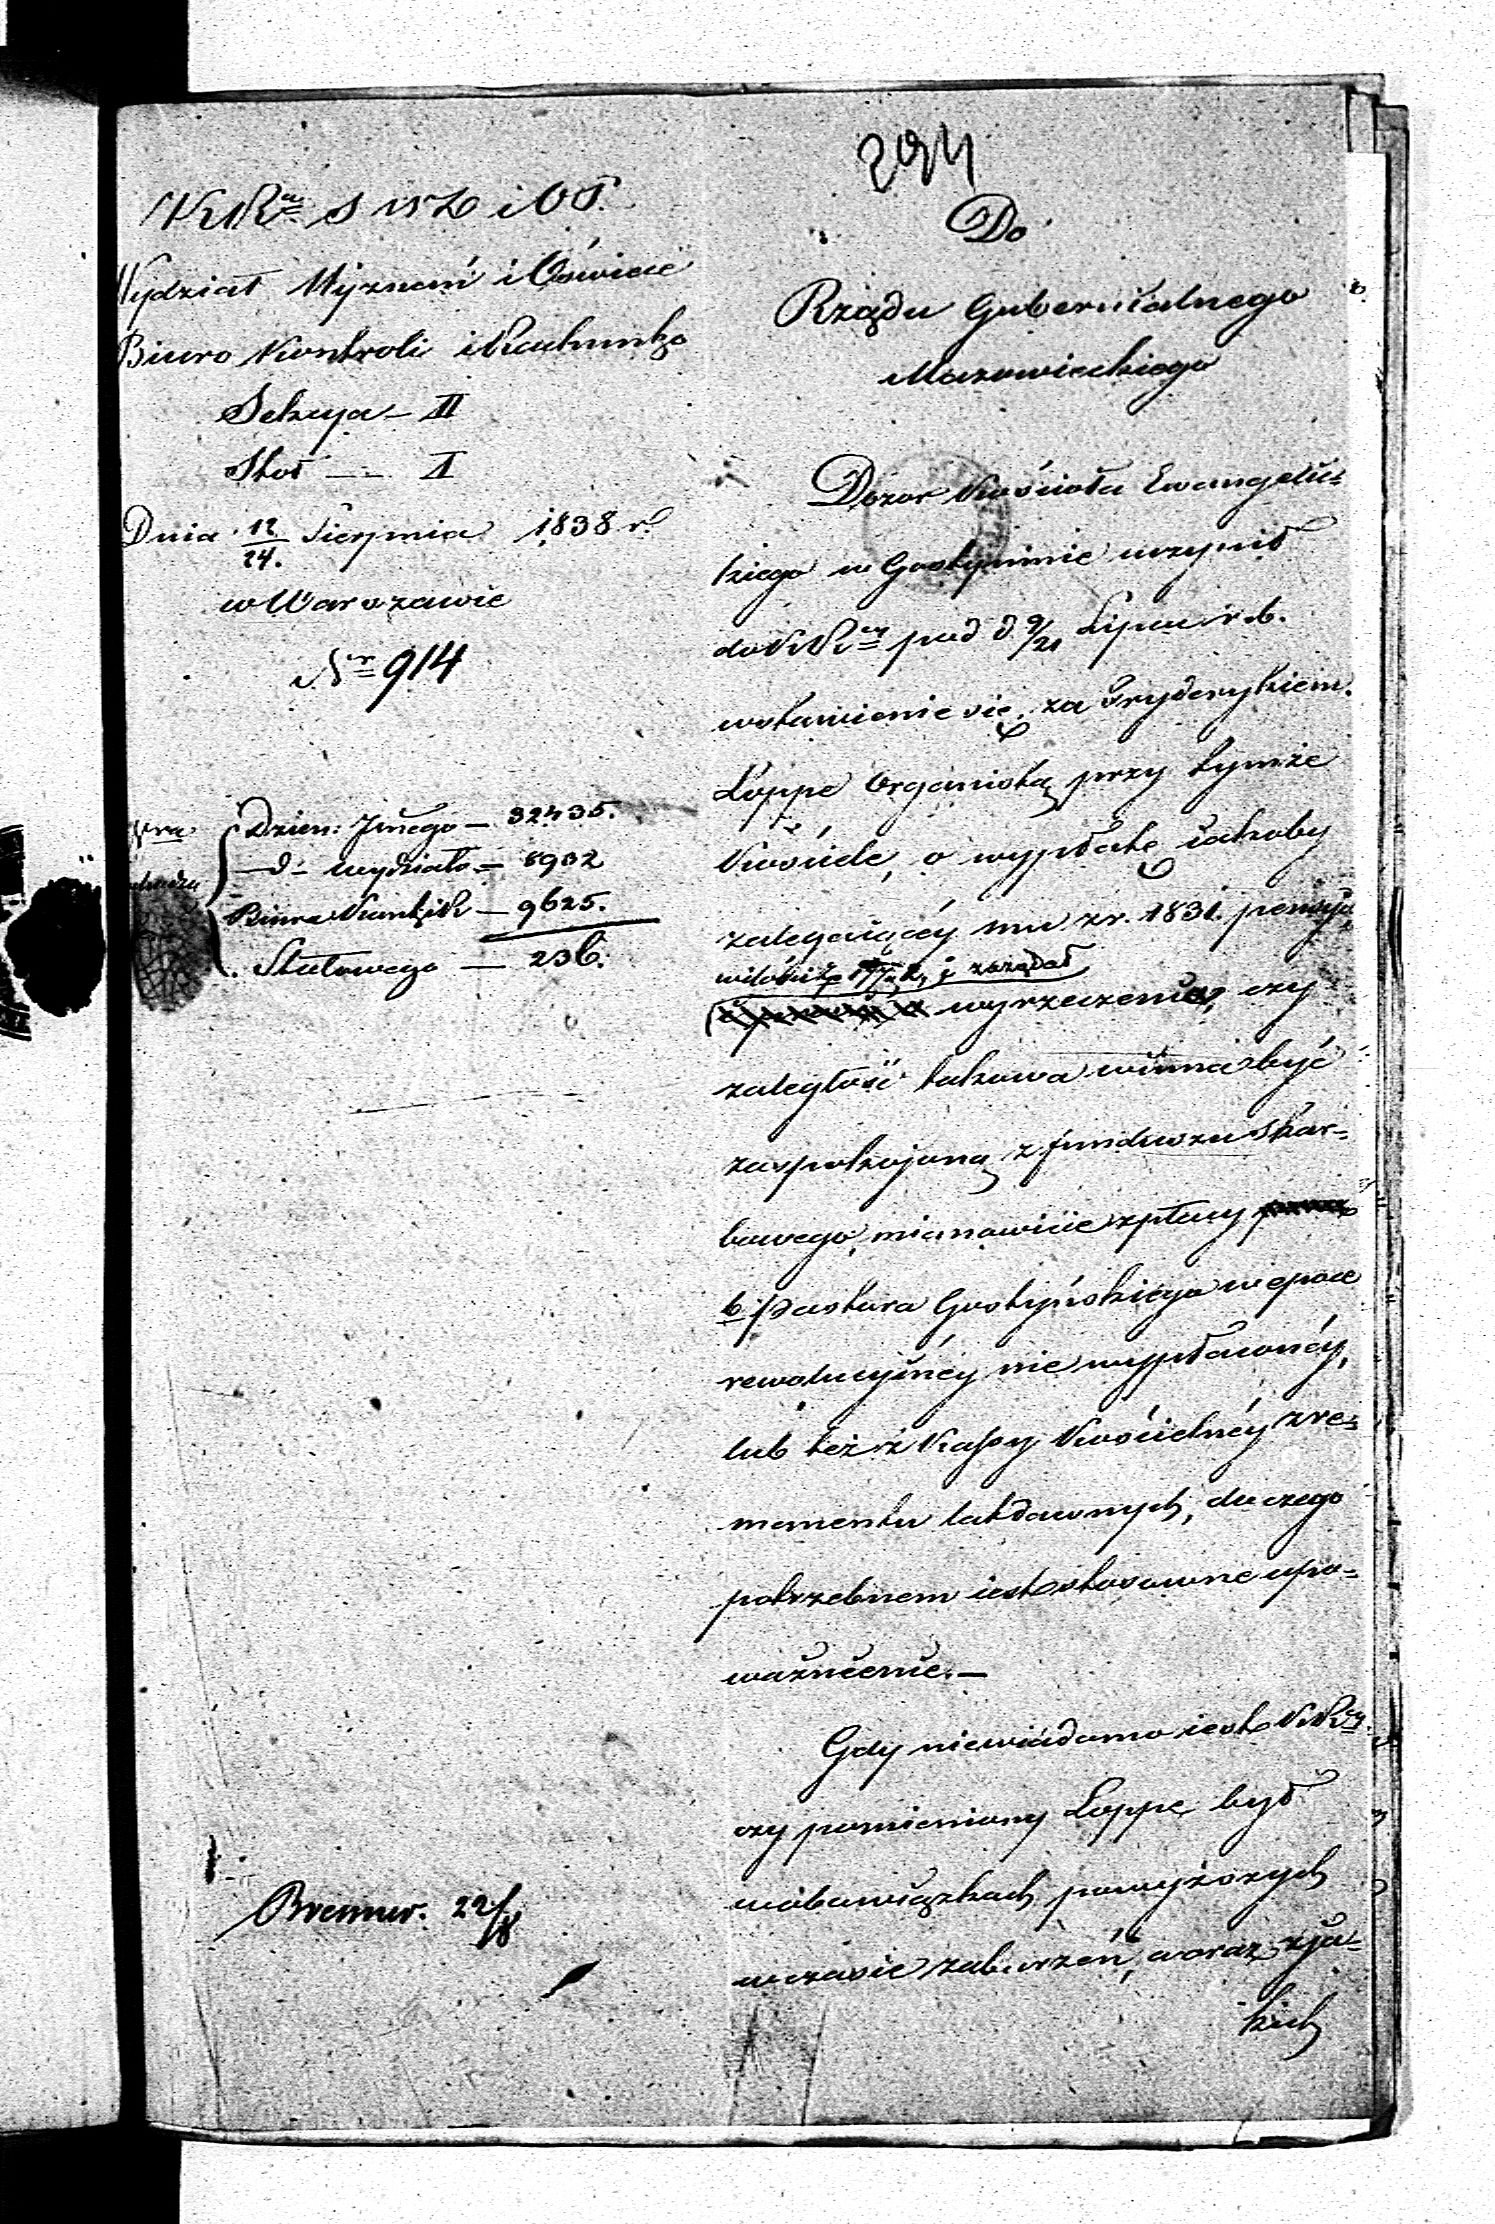 294
KRa S W D i O P.
Wydział Wyznań i Oświece
Biuro Kontroli i Rachunko
Sekcya — II
Stoł — I
Dnia 12/24. Sierpnia 1838 r.
w Warszawie
Nr 914
Dzien: Jnego — 32435.
— d — wydziało — 8902
Biura Kontroli — 9625.
Stołowego — 236.
Brenner. 22/8
Do
Rządu Gubernialnego
Mazowieckiego
Dozor Kościoła Ewangelic-
kiego w Gostyninie uczynił
do KRey pod d 9/21 Lipca r. b.
wstawienie się za Fryderykiem
Loppe Organistą przy tymże
Kościele, o wypłatę iakoby
zalegaiącéy mu z r. 1831. pensyi
w ilości i zażądał
wyrzeczenia, czy
zaległość takowa winna być
zaspokojoną z funduszu Skar-
bowego, mianowicie z płacy
b. Pastora Gostyńskiego w epoce
rewolucyinéy nie wypłaconéy,
lub też z Kassy Kościelnéy z re-
manentu lat dawnych, do czego
potrzebnem iest stosowne upo-
ważnienie. —
Gdy niewiadomo iest KRey
czy pomieniony Loppe był
w obowiązkach powyższych
w czasie zaburzeń, a oraz z ja-
kich